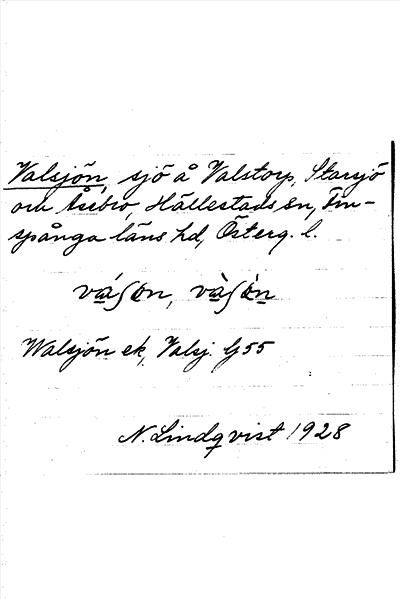 Valsjön, sjö å Valstorp, Starsjö
och Åsebro, Hällestads sn, Fin-
spånga läns hd, Österg. l.
váʃon, vàʃòn
Walsjön ek, Valsj. G55
N. Lindqvist 1928